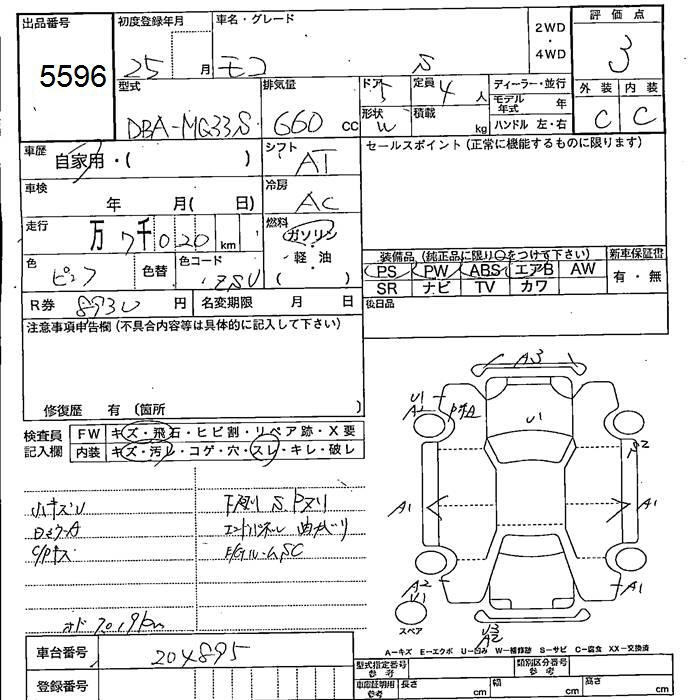 出品番号 初度登録年月 車名・グレード 2WD・4WD 評価点
5596 25 月 モコ S 3
外装 内装
C C
型式 排気量 ドア 定員 ディーラー・並行
DBA-MG33S 660 cc 5 4人 モデル年式 年
形状 積載 ハンドル 左・右
W kg
車歴 シフト セールスポイント(正常に機能するものに限ります)
自家用・( ) AT
車検 冷房
年 月( 日) AC
走行 燃料
万 7千020 km ガソリン・軽油
( )
装備品(純正品に限り○をつけて下さい) 新車保証書
PS PW ABS エアB AW 有・無
SR ナビ TV カワ
色 色替 色コード
ピンク ZSU
R券 8930 円 名変期限 月 日 後日品
注意事項申告欄(不具合内容等は具体的に記入して下さい)
修復歴 有 (箇所 )
検査員 FW キズ・飛石・ヒビ割・リペア跡・X要
記入欄 内装 キズ・汚レ・コゲ・穴・スレ・キレ・破レ
A3
U1
A1
U1
S2
A1
A1
A2
U1
A1
U3
A2
スペア
小キズU
エンドパネル
オド 7019km
A-キズ E-エクボ U-凹み W-補修跡 S-サビ C-腐食 XX-交換済
車台番号 204895
型式指定番号 参考 類別区分番号 参考
登録番号
車庫証明用 参考 長さ cm 幅 cm 高さ cm